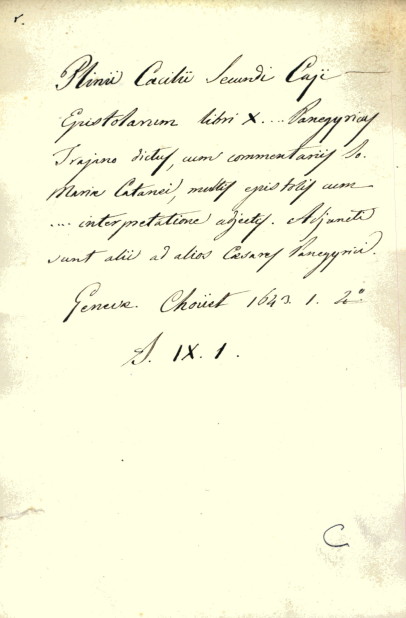 r.
Plinii Caecilii Secundi Caji —
Epistolarum libri X. ... Panegyricus
Trajano dictus, cum commentariis Jo.
Mariae Catanei, multis epistolis cum
.... interpretatione adjectis. Adjuncti
sunt alii ad alios Caesares Panegyrici.
Genevae. Chouët 1643. 1. 4°
S. IX. 1.
C